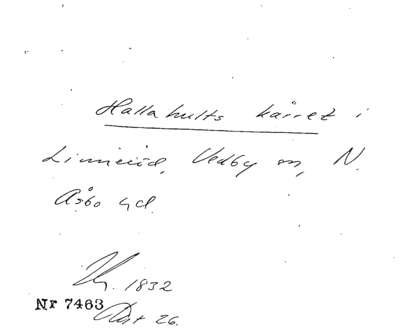 Hallahults kärret i
Linneröd, Vedby sn, N.
Åsbo hd.
1832
Nr 7463
Akt 26.